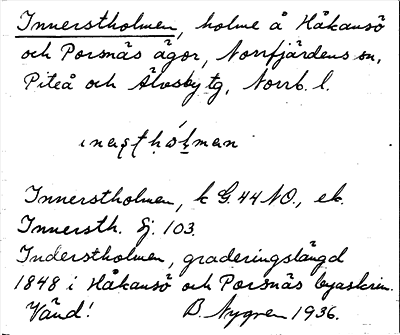 Innerstholmen, holme å Håkansö
och Porsnäs ägor, Norrfjärdens sn,
Piteå och Älvsby tg, Norrb. l.
Innerstholmen, k G.44 NO., ek.
Innersth. Sj. 103.
Inderstholmen, graderingslängd
1848 i Håkansö och Porsnäs byaskrin.
Vänd! B. Nygren 1936.